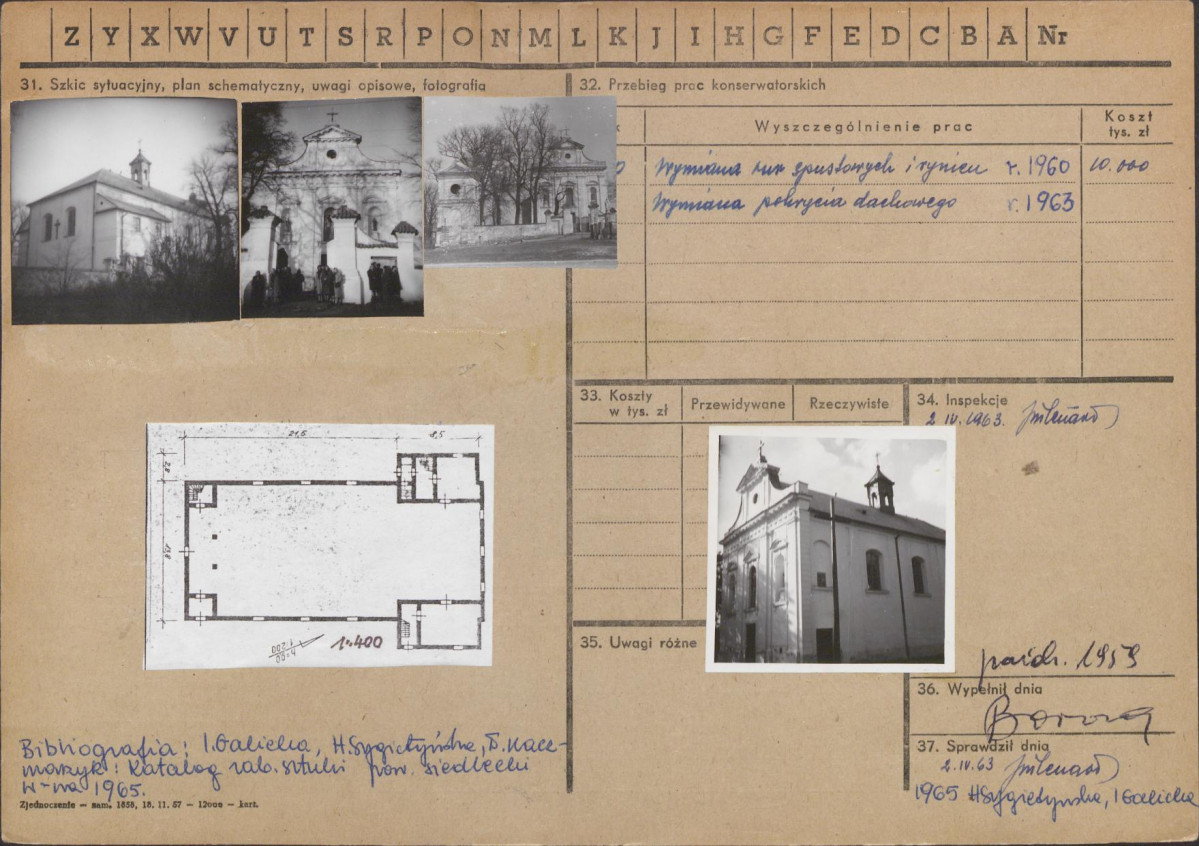 Z Y X W V U T S R P O N M L K J I H G F E D C B A Nr
31. Szkic sytuacyjny, plan schematyczny, uwagi opisowe, fotografia
21,5
8,5
1:400
1:200
Bibliografia: I. Galicka, H. Sygietyńska, D. Kacz-
marzyk: Katalog zab. sztuki pow. siedlecki
w-wa 1965.
Zjednoczenie — zam. 1858, 18. 11. 57 — 12000 — kart.
32. Przebieg prac konserwatorskich
Wyszczególnienie prac
Koszt
tys. zł
Wymiana rur spustowych i rynien r. 1960 10.000
Wymiana pokrycia dachowego r. 1963
33. Koszty
w tys. zł
Przewidywane
Rzeczywiste
34. Inspekcje
2 IV. 1963.
35. Uwagi różne
paźdz. 1959
36. Wypełnił dnia
37. Sprawdził dnia
2. IV. 63
1965 H Sygietyńska, I Galicka